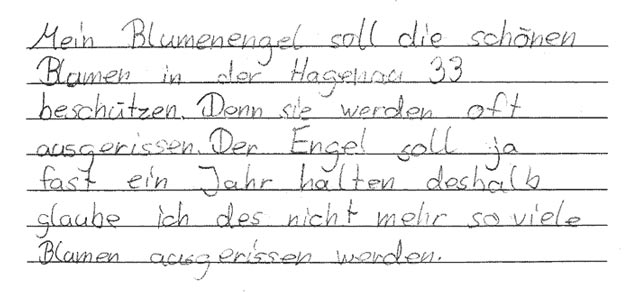 Mein Blumenengel soll die schönen
Blumen in der Hagenau 33
beschützen. Denn sie werden oft
ausgerissen. Der Engel soll ja
fast ein Jahr halten deshalb
glaube ich des nicht mehr so viele
Blumen ausgerissen werden.